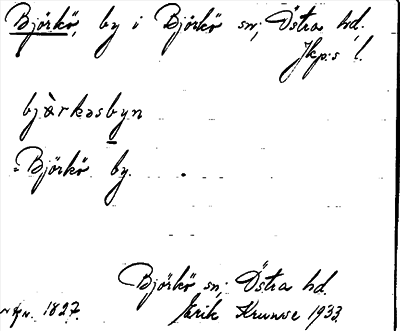 Björkö, by i Björkö sn; Östra hd.
Jkp:s l.
bjàrkəsbyn
=Björkö by.
Björkö sn; Östra hd.
1827. Erik Krunse 1933